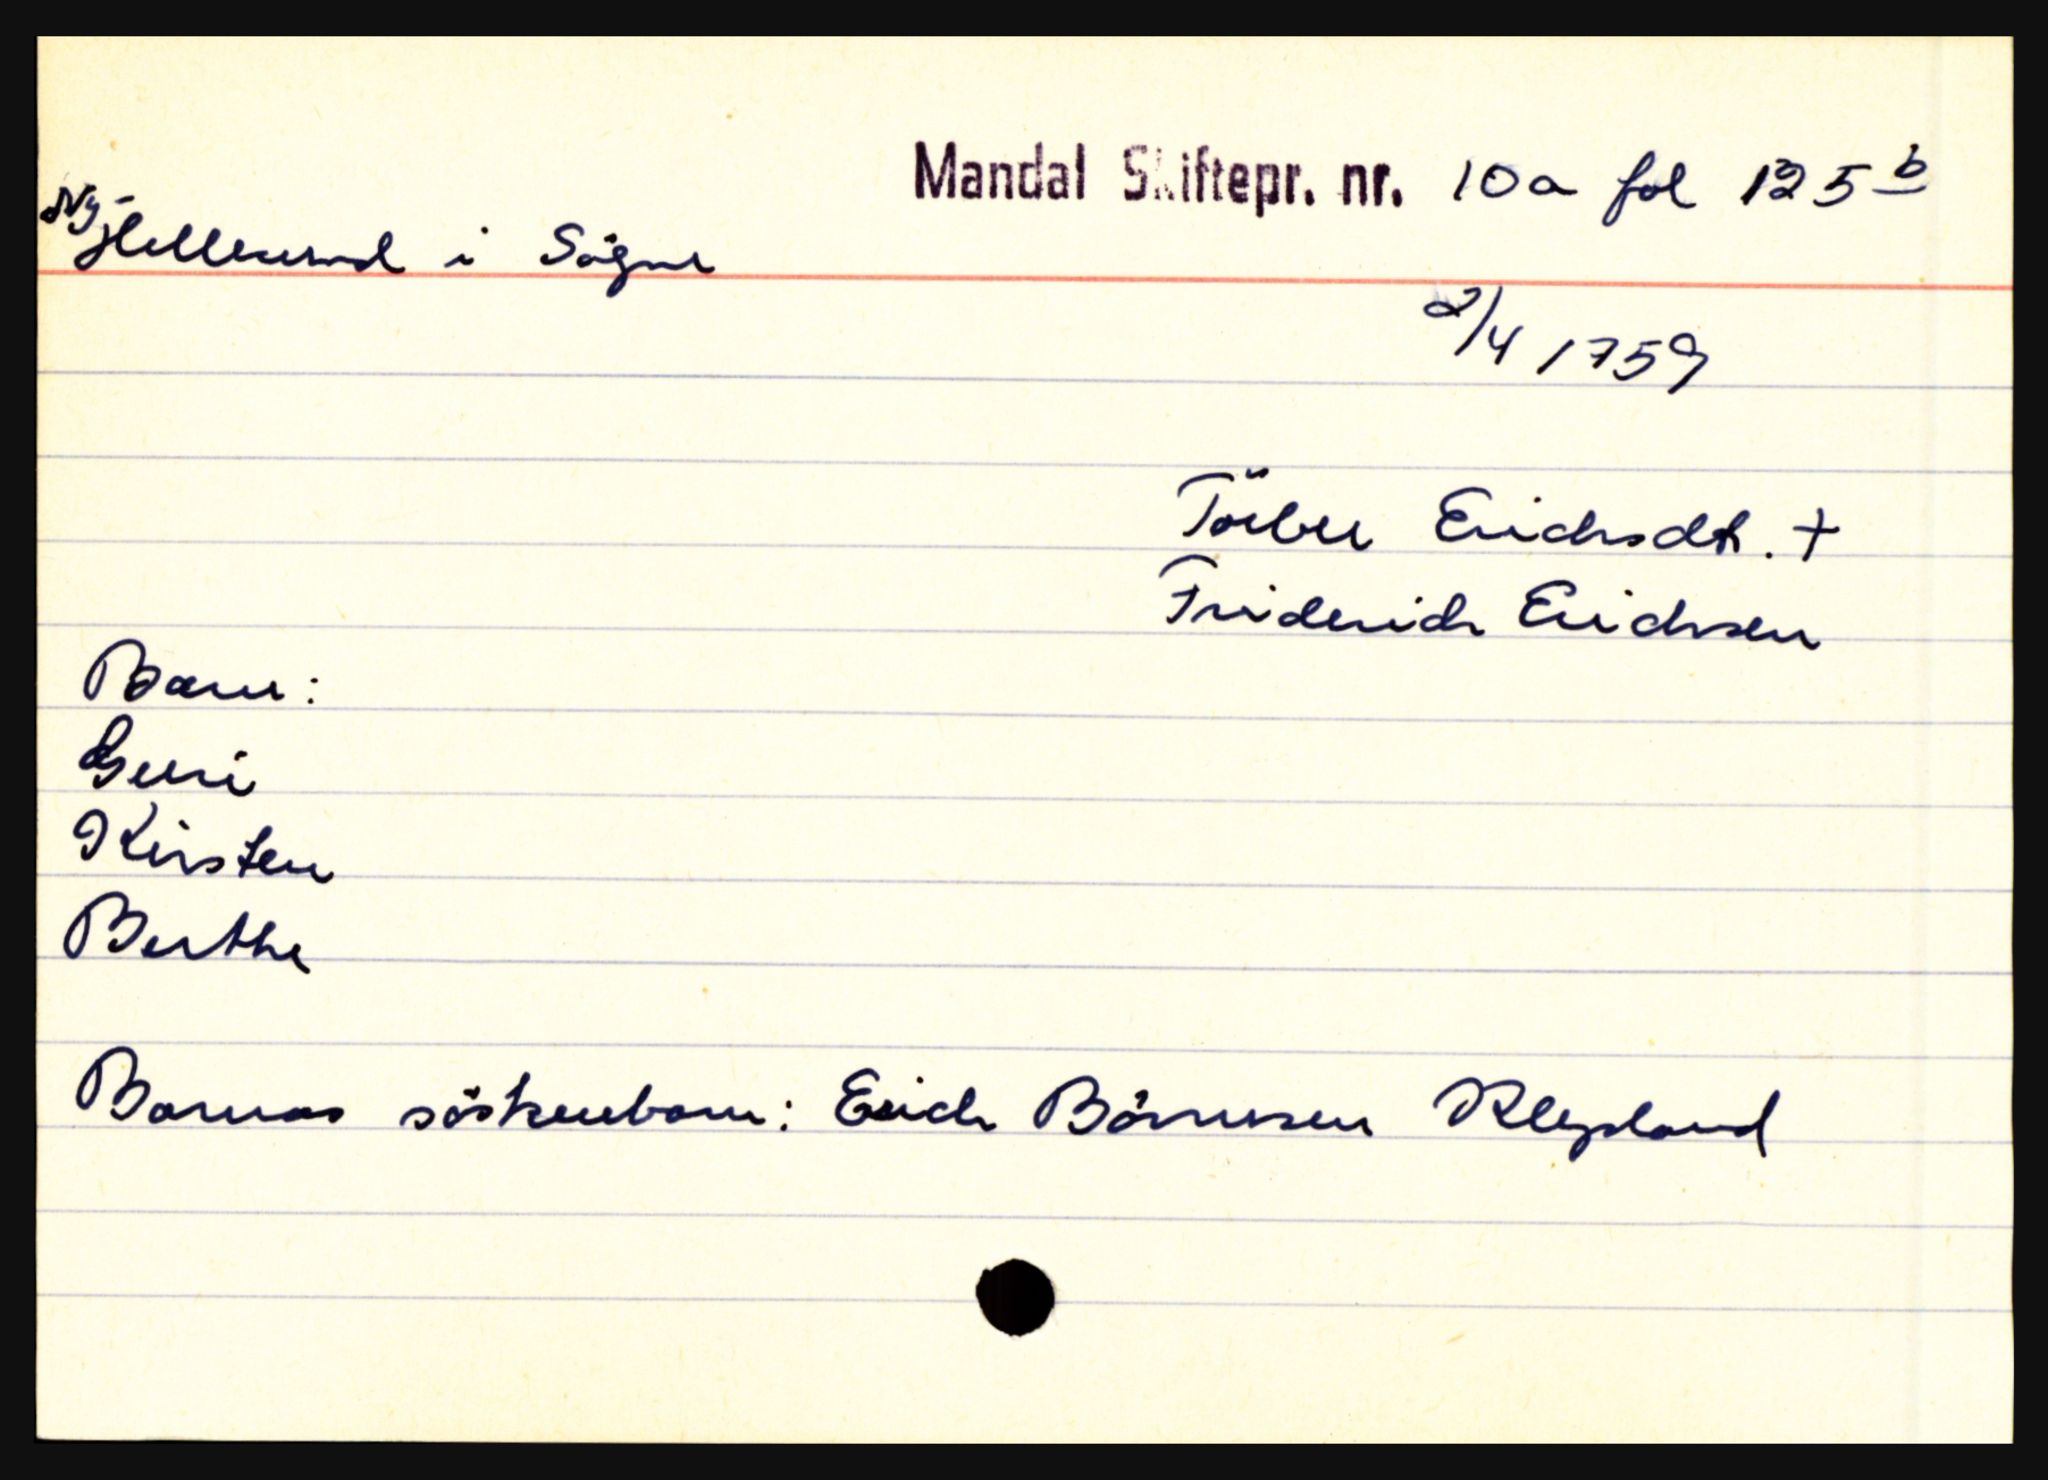 Mandal Skiftepr. nr. 10a fol 125 b
Ny-Hellesund i Sögne
2/4 1759
Törber Erichsdt. +
Friderich Erichsen
Barn:
Guri
Kirsten
Berthe
Barnas söskenbarn: Erich Börresen Klepland